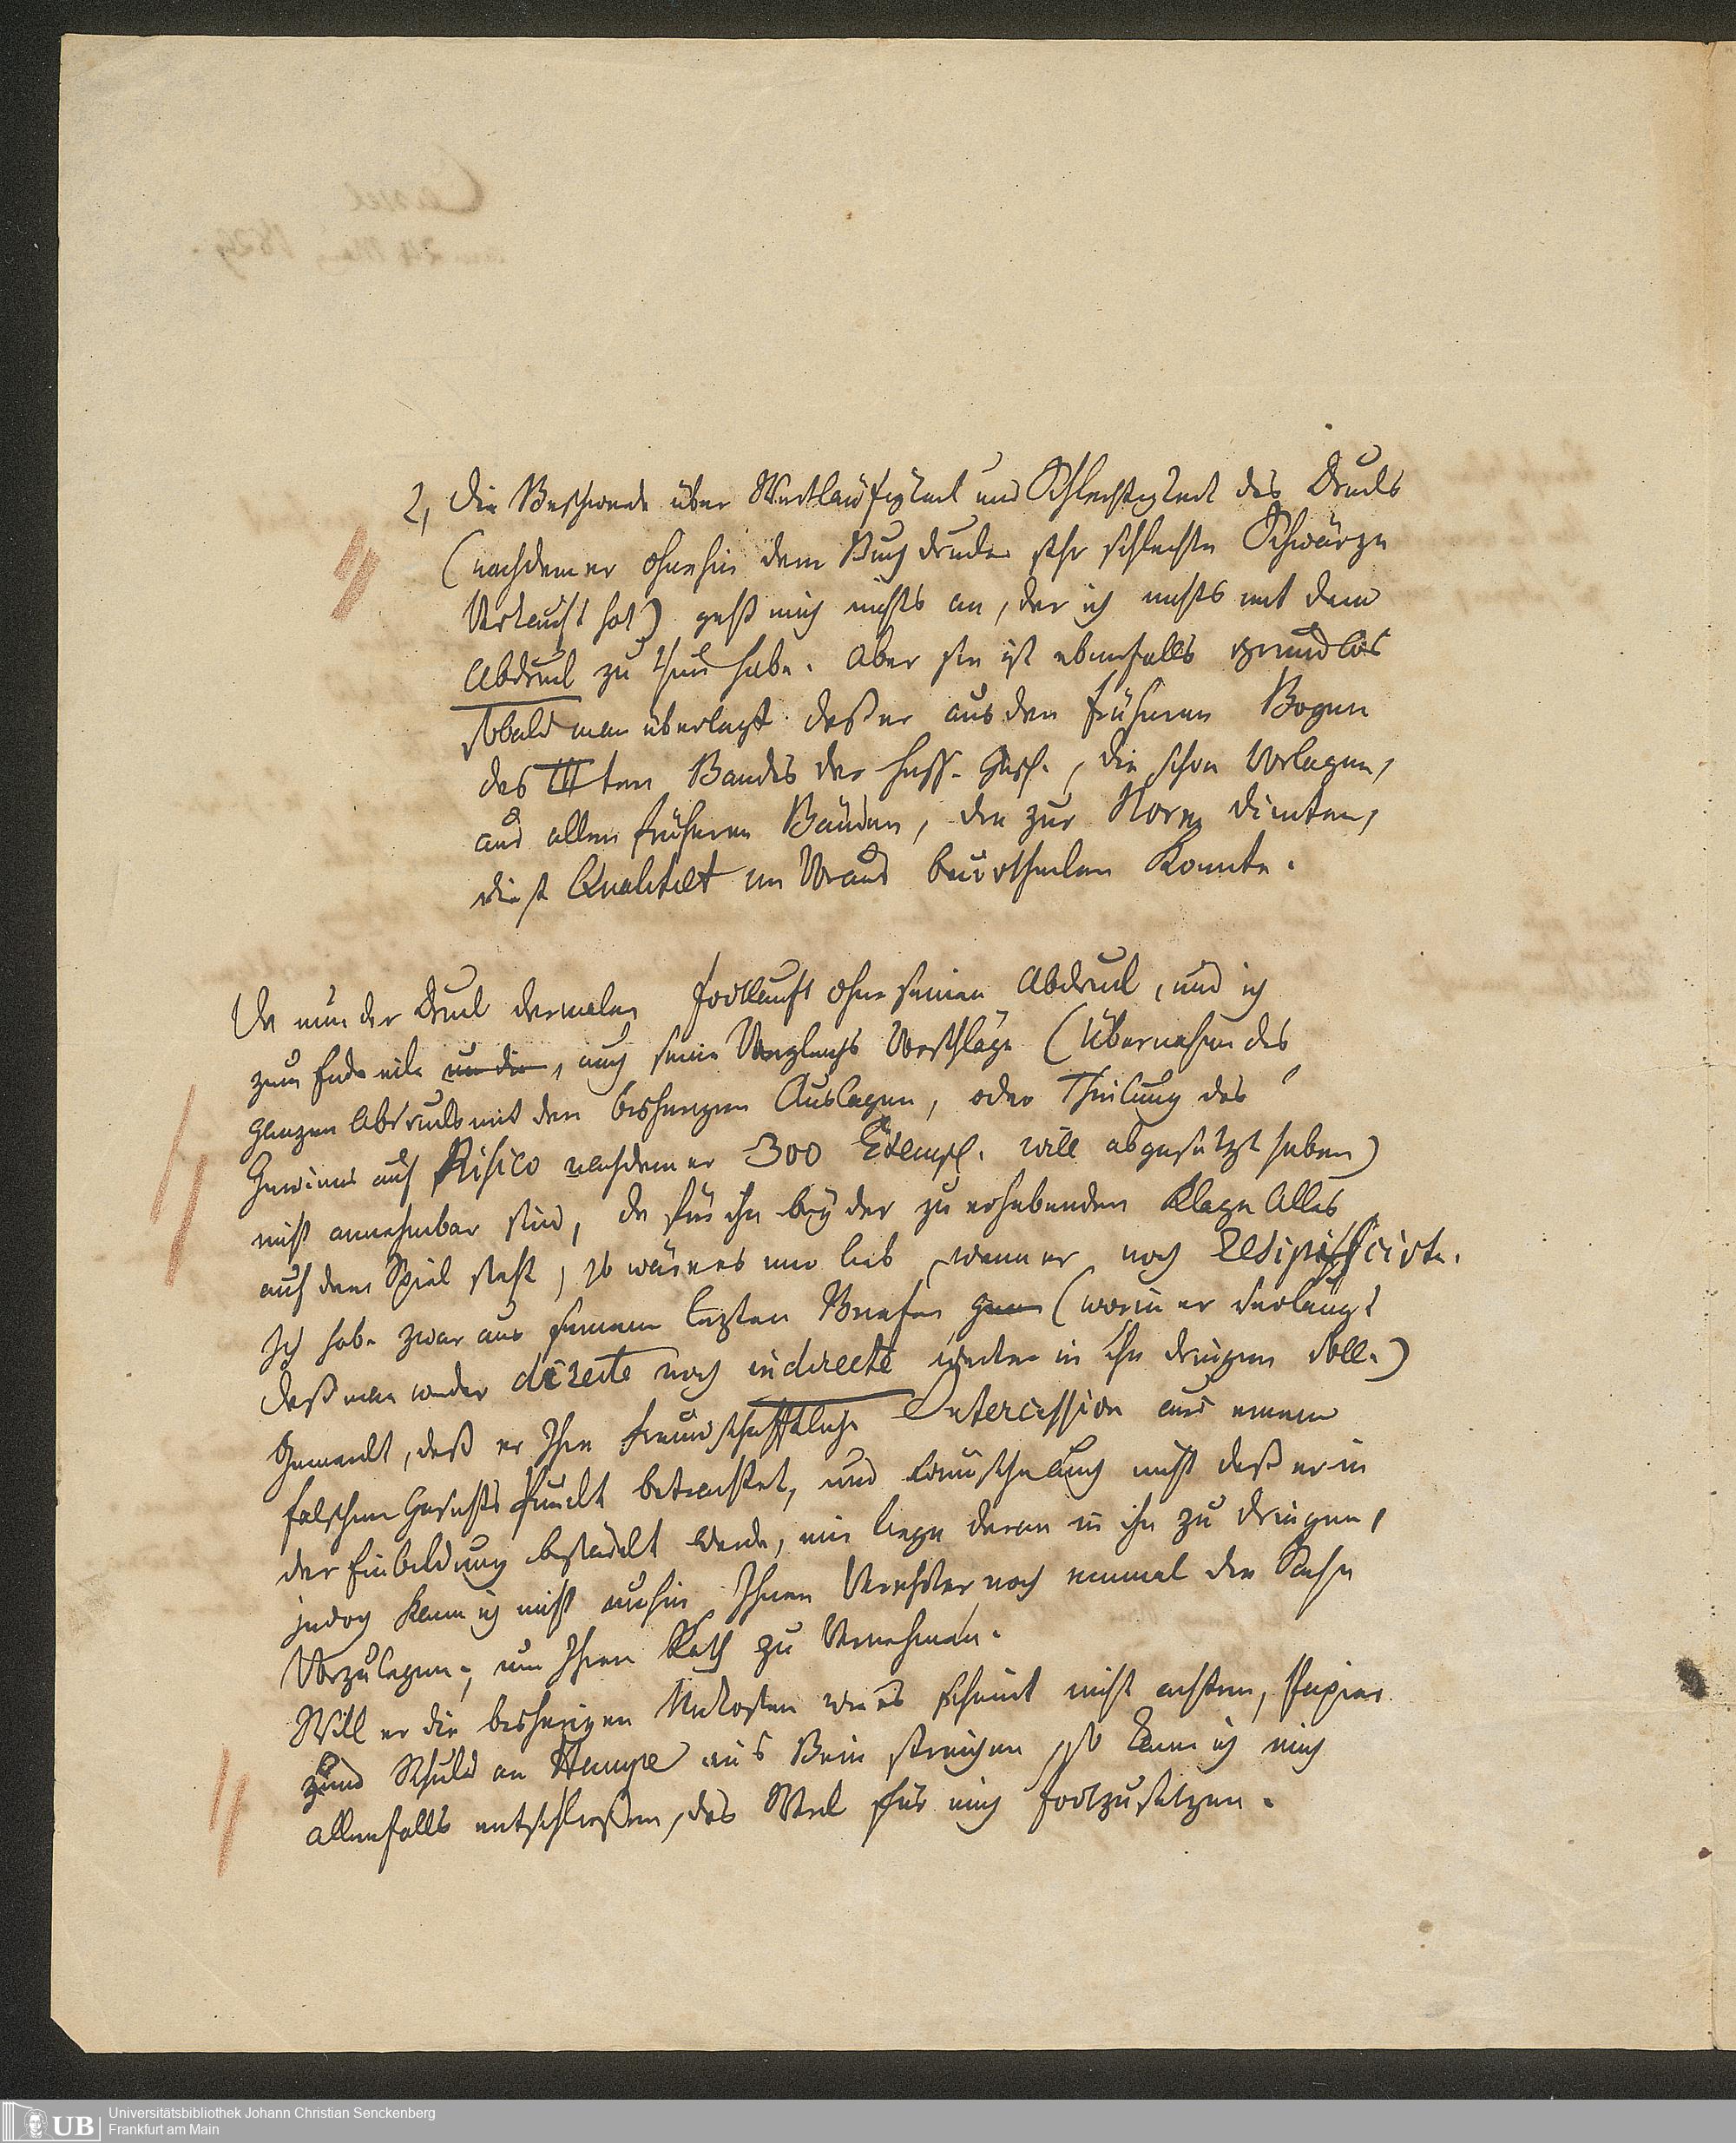 2, die Beschwerde über Weitläufigkeit und Schlechtigkeit des Drucks
(nachdem er ohnehin dem Buchdrucker sehr schlechte Schwärze
verkauft hat) geht mich nichts an, der ich nichts mit dem
Abdruck zu thun habe. Aber sie ist ebenfalls grundlos
sobald man überlegt daß er aus den früheren Bogen
des IIIten Bandes der hess. Gesch., die schon vorlagen,
aus allen früheren Bänden, die zur Norm dienten,
diese Qualität im Voraus beurtheilen konnte.
Da nun der Druck dermalen fortlauft ohne seinen Abdruck, und ich
zum Ende eile um die, auch seine Vergleichs Vorschläge (Übernahme des
ganzen Abdrucks mit den bisherigen Auslagen, oder Theilung des
Gewinns auf Risico nachdem er 300 Exempl. will abgesetzt haben)
nicht annehmbar sind, da für ihn bey der zu erhebenden Klage Alles
auf dem Spiel steht, so wäre es mir lieb, wenn er noch resipiscirte.
Ich habe zwar aus seinem letzten Briefen (worin er verlangt
daß man weder directe noch indirecte weiter in ihn dringen solle.)
Gemerkt, daß er Ihre freundschaftliche Intercession aus einem
falschen Gesichtspunckt betrachtet, und wünsche auch nicht daß er in
der Einbildung bestärkt werde, mir liege daran in ihn zu dringen,
jedoch kann ich nicht umhin Ihnen Verehrter noch einmal die Sache
vorzulegen, um Ihren Rath zu vernehmen.
Will er die bisherigen Unkosten wie es scheint nicht achten, Papier
und Schuld an Hampe ans Bein streichen, so kann ich mich
allenfalls entschließen, das Werk für mich fortzusetzen.
Cassel
am 24 May 1829.
Universitätsbibliothek Johann Christian Senckenberg
Frankfurt am Main
UB